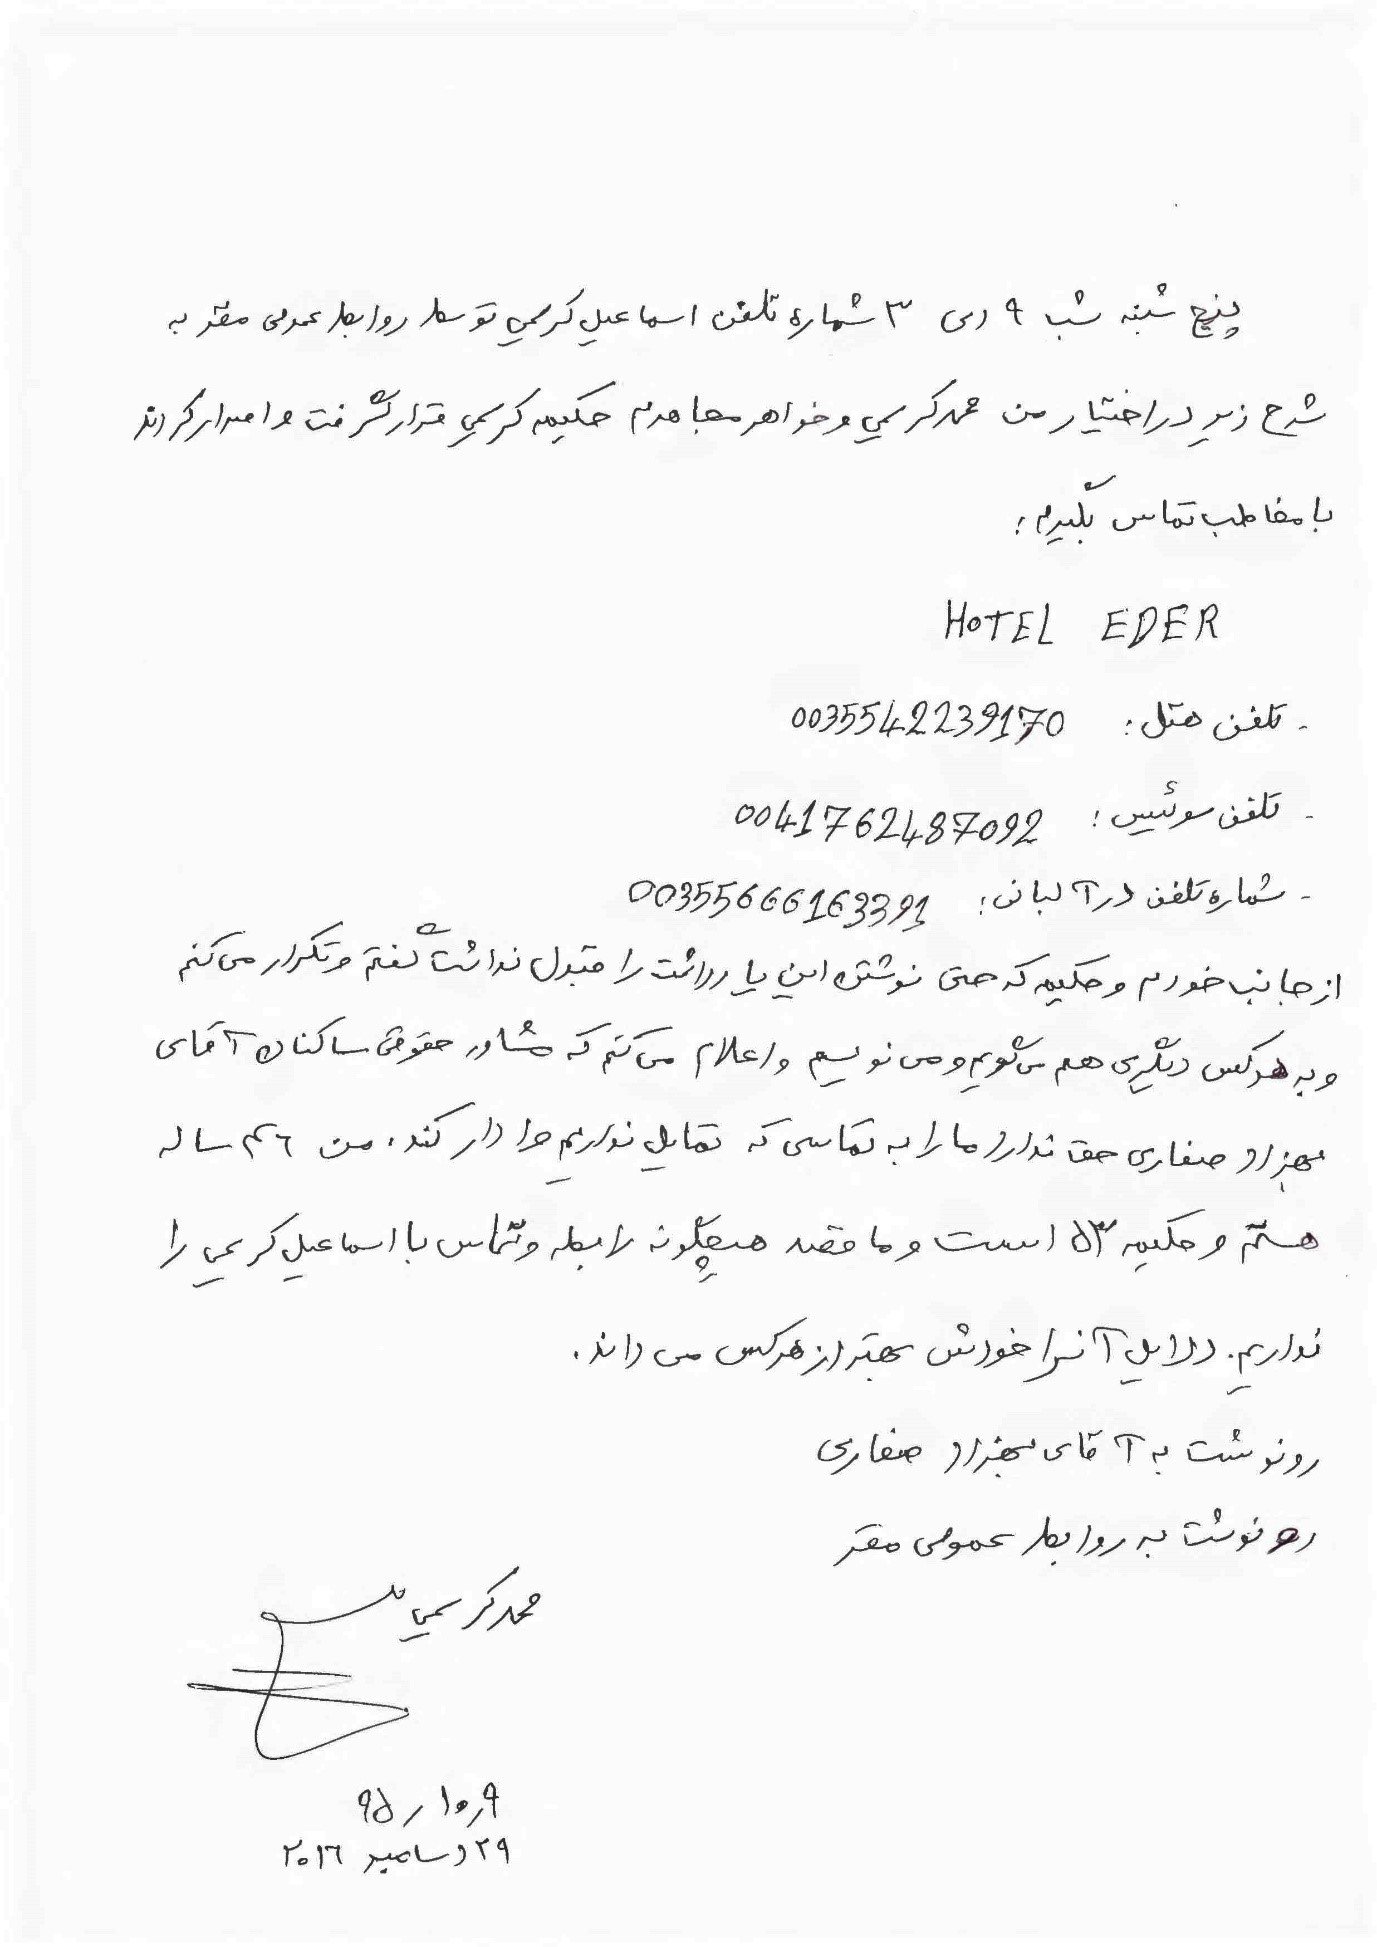 پنج شنبه شب ۹ دی ۳ شماره تلفن اسماعیل کریمی توسط روابط عمومی مقر به
شرح زیر در اختیار من محمد کریمی و خواهر مجاهدم حکیمه کریمی قرار گرفت و اصرار کردند
با مخاطب تماس بگیرم:
HOTEL EDER
- تلفن هتل: 0035542239170
- تلفن سوئیس: 0041762487092
- شماره تلفن در آلبانی: 00355666163391
از جانب خودم و حکیمه که حتی نوشتن این یادداشت را قبول نداشت گفتم و تکرار می کنم
و به هر کس دیگری هم می گویم و می نویسم و اعلام می کنم که مشاور حقوقی ساکنان آقای
بهزاد صفاری حق ندارد ما را به تماسی که تمایل نداریم وادار کند. من ۴۶ ساله
هستم و حکیمه ۵۳ است و ما قصد هیچگونه رابطه و تماس با اسماعیل کریمی را
نداریم. دلایل آنرا خودش بهتر از هرکس می داند.
رونوشت به آقای بهزاد صفاری
رونوشت به روابط عمومی مقر
محمد کریمی
۹ر۱۰ر۹۵
۲۹ دسامبر ۲۰۱۶